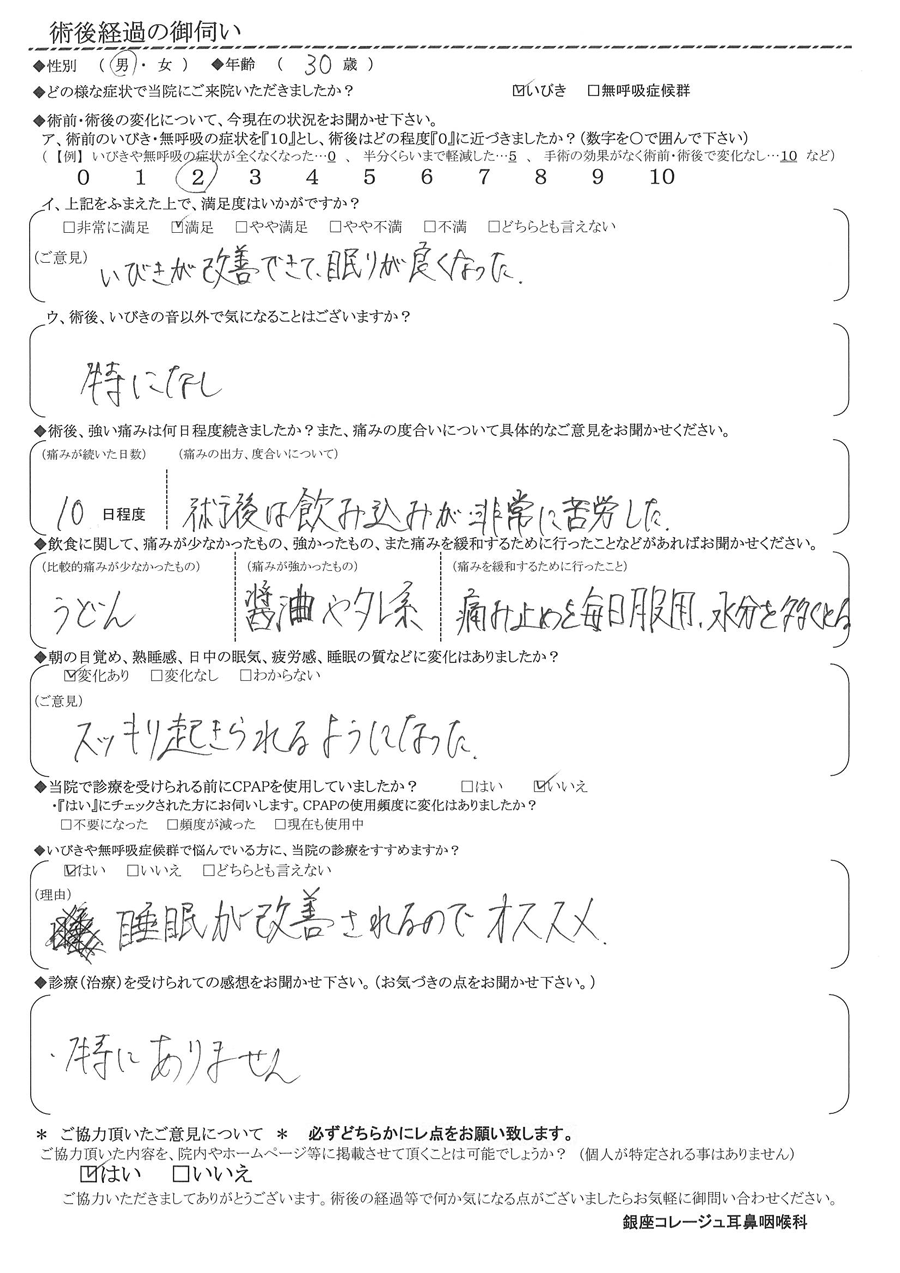 術後経過の御伺い
◆性別 （ 男 ・ 女 ） ◆年齢 （ 30 歳 ）
◆どの様な症状で当院にご来院いただきましたか？ ☑いびき □無呼吸症候群
◆術前・術後の変化について、今現在の状況をお聞かせ下さい。
ア、術前のいびき・無呼吸の症状を『10』とし、術後はどの程度『0』に近づきましたか？（数字を○で囲んで下さい）
（【例】いびきや無呼吸の症状が全くなくなった…0 、 半分くらいまで軽減した…5 、 手術の効果がなく術前・術後で変化なし…10 など）
0 1 2 3 4 5 6 7 8 9 10
イ、上記をふまえた上で、満足度はいかがですか？
□非常に満足 ☑満足 □やや満足 □やや不満 □不満 □どちらとも言えない
（ご意見） いびきが改善できて、眠りが良くなった.
ウ、術後、いびきの音以外で気になることはございますか？
特になし
◆術後、強い痛みは何日程度続きましたか？また、痛みの度合いについて具体的なご意見をお聞かせください。
（痛みが続いた日数） （痛みの出方、度合いについて）
10 日程度 術後は飲み込みが非常に苦労した.
◆飲食に関して、痛みが少なかったもの、強かったもの、また痛みを緩和するために行ったことなどがあればお聞かせください。
（比較的痛みが少なかったもの） （痛みが強かったもの） （痛みを緩和するために行ったこと）
うどん 醤油やタレ系 痛み止めを毎日服用、水分を多くとる
◆朝の目覚め、熟睡感、日中の眠気、疲労感、睡眠の質などに変化はありましたか？
☑変化あり □変化なし □わからない
（ご意見）
スッキリ起きられるようになった.
◆当院で診療を受けられる前にCPAPを使用していましたか？ □はい ☑いいえ
・『はい』にチェックされた方にお伺いします。CPAPの使用頻度に変化はありましたか？
□不要になった □頻度が減った □現在も使用中
◆いびきや無呼吸症候群で悩んでいる方に、当院の診療をすすめますか？
☑はい □いいえ □どちらとも言えない
（理由）
睡眠が改善されるのでオススメ.
◆診療（治療）を受けられての感想をお聞かせ下さい。（お気づきの点をお聞かせ下さい。）
・特にありません
＊ ご協力頂いたご意見について ＊ 必ずどちらかにレ点をお願い致します。
ご協力頂いた内容を、院内やホームページ等に掲載させて頂くことは可能でしょうか？ （個人が特定される事はありません）
☑はい □いいえ
ご協力いただきましてありがとうございます。術後の経過等で何か気になる点がございましたらお気軽に御問い合わせください。
銀座コレージュ耳鼻咽喉科